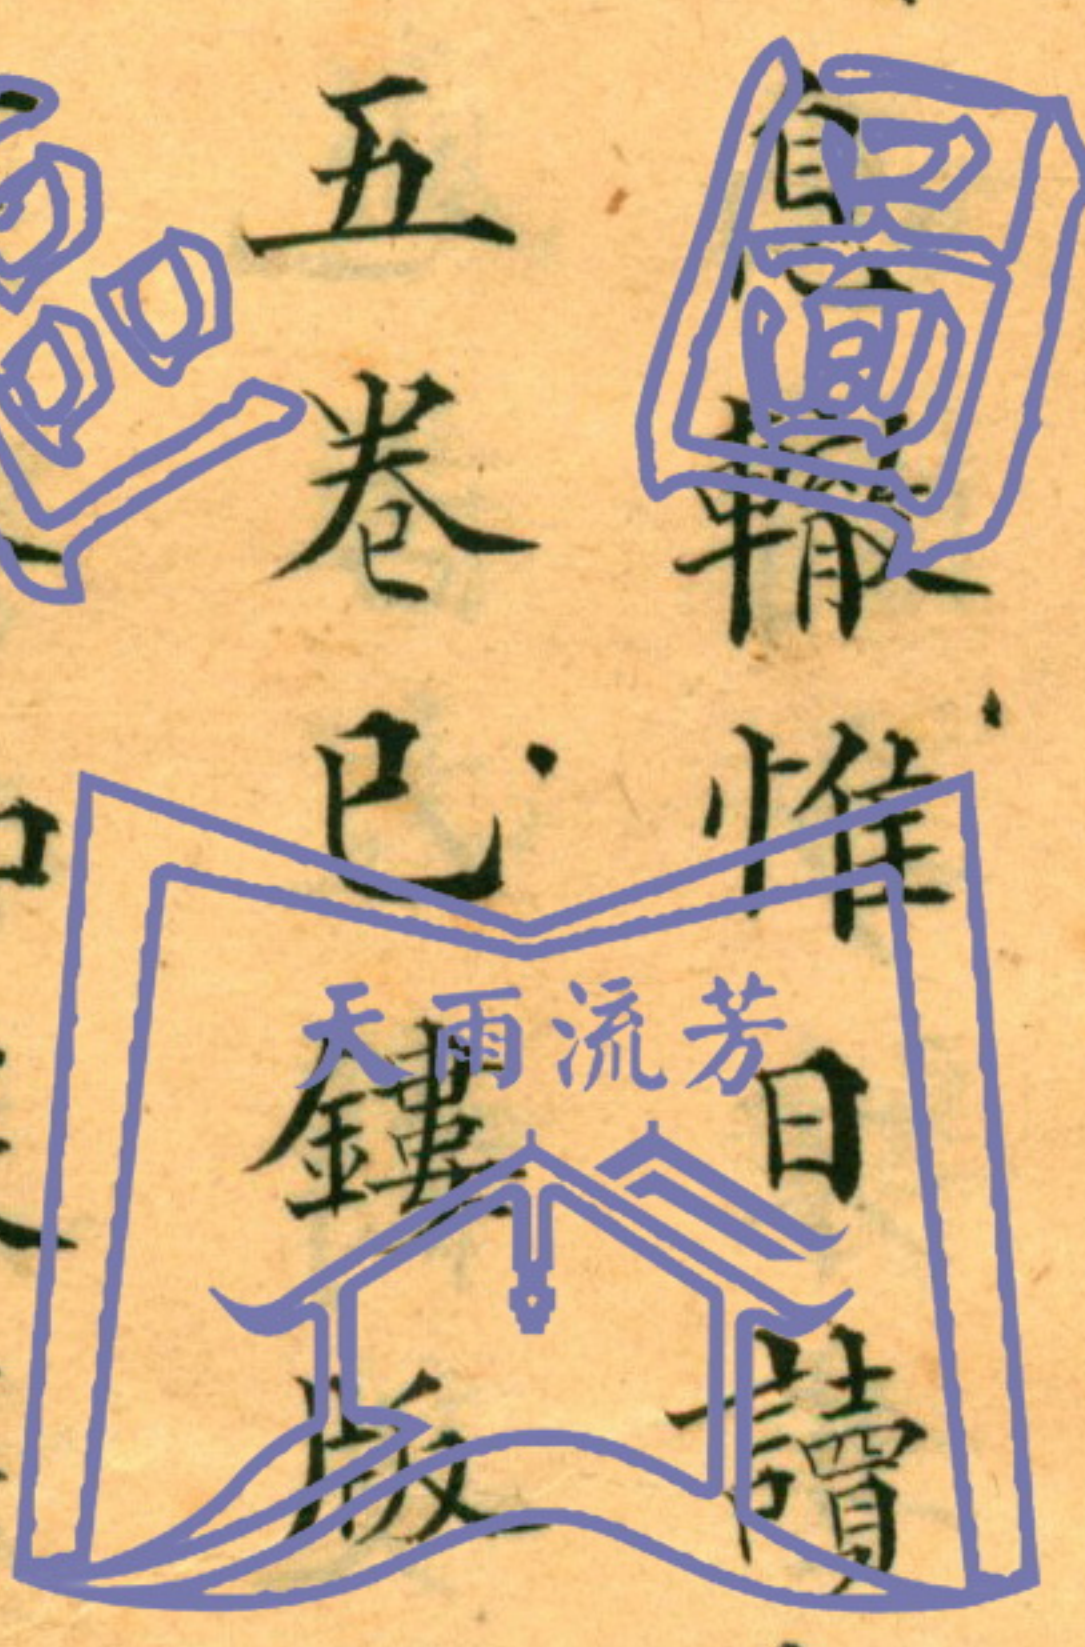 息轍惟日讀
五卷已鏤版
天雨流芳
圖